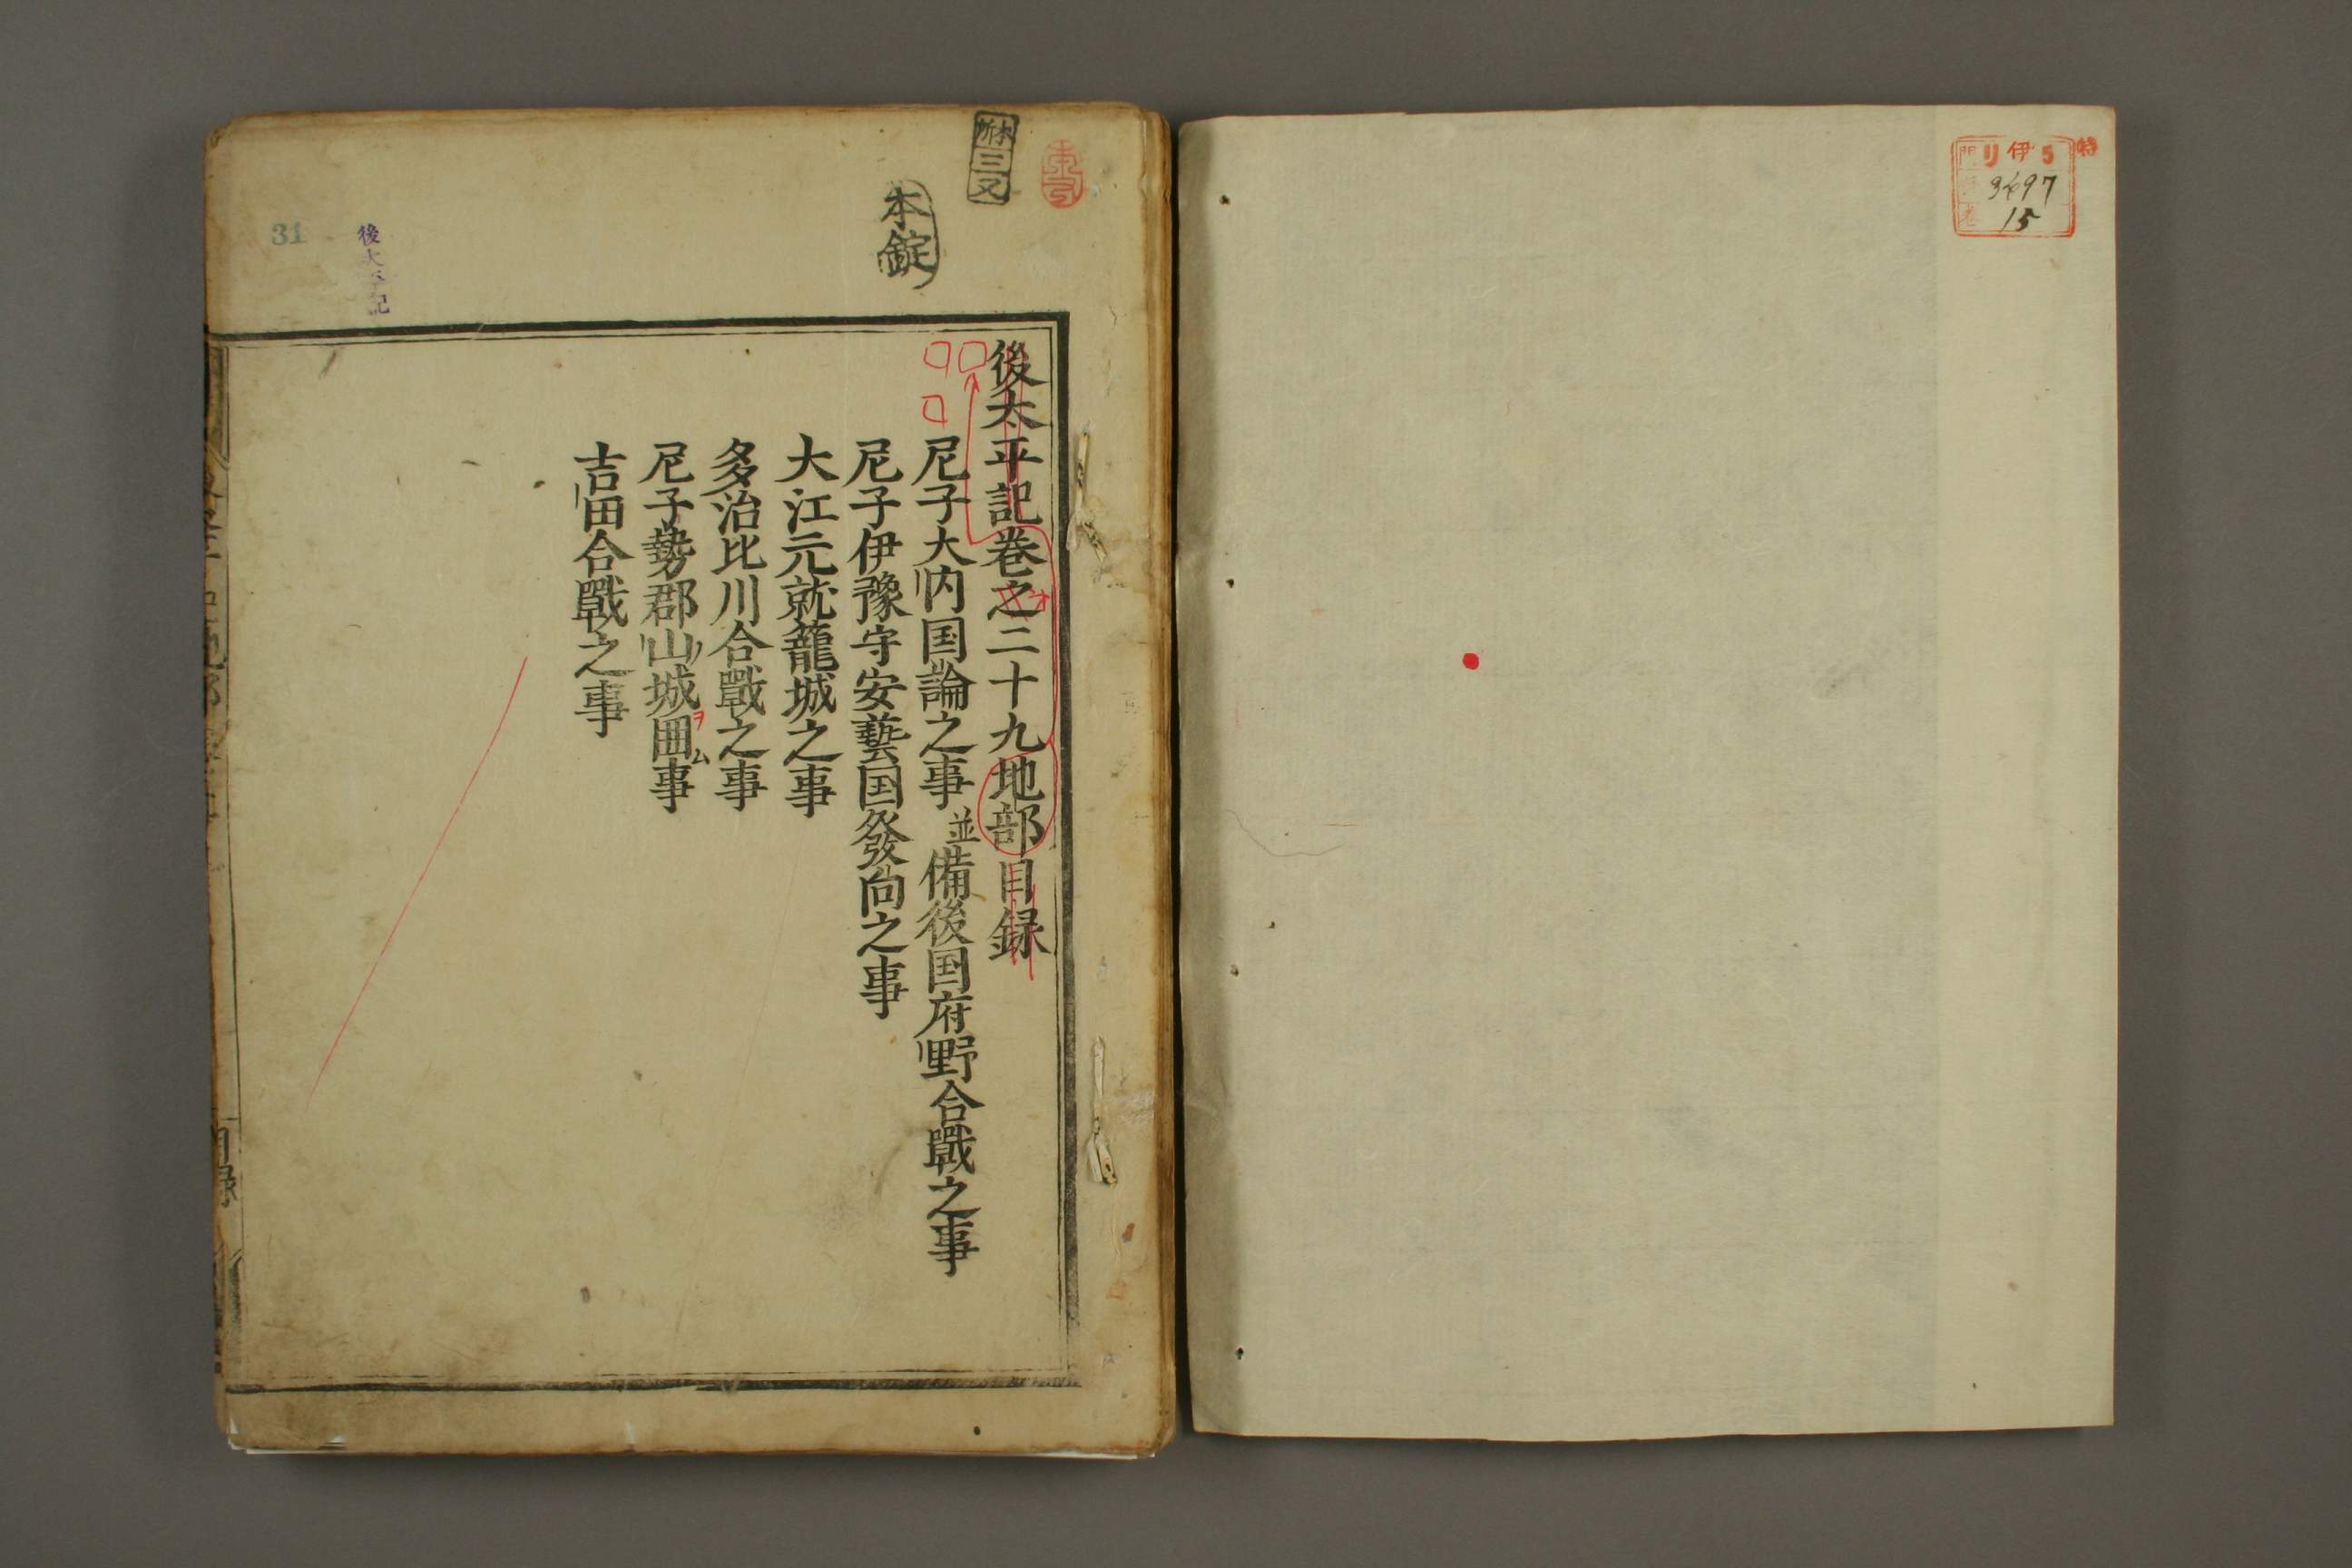 特
リ伊5
3497
15
本錠
31
後太平記
後太平記卷之二十九地部目録
尼子大内国論之事並備後国府野合戰之事
尼子伊豫守安藝国發向之事
大江元就籠城之事
多治比川合戰之事
尼子勢郡山ノ城囲ヲム事
吉田合戰之事
目録